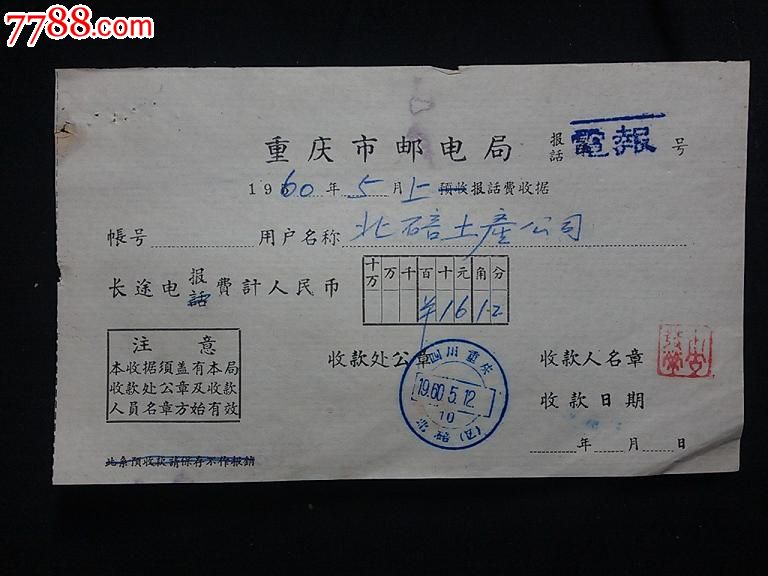 7788.com
重庆市邮电局 报话 電報 号
1960年5月上预收报话费收据
帐号 用户名称 北碚土產公司
长途电报话费計人民币 十万 万 千 百 十 元 角 分
¥16 12
注意
本收据须盖有本局
收款处公章及收款
人员名章方始有效
收款处公章
四川重庆
1960.5.12
10
北碚(四)
收款人名章
收款日期
年 月 日
此系预收款请保存不作报销